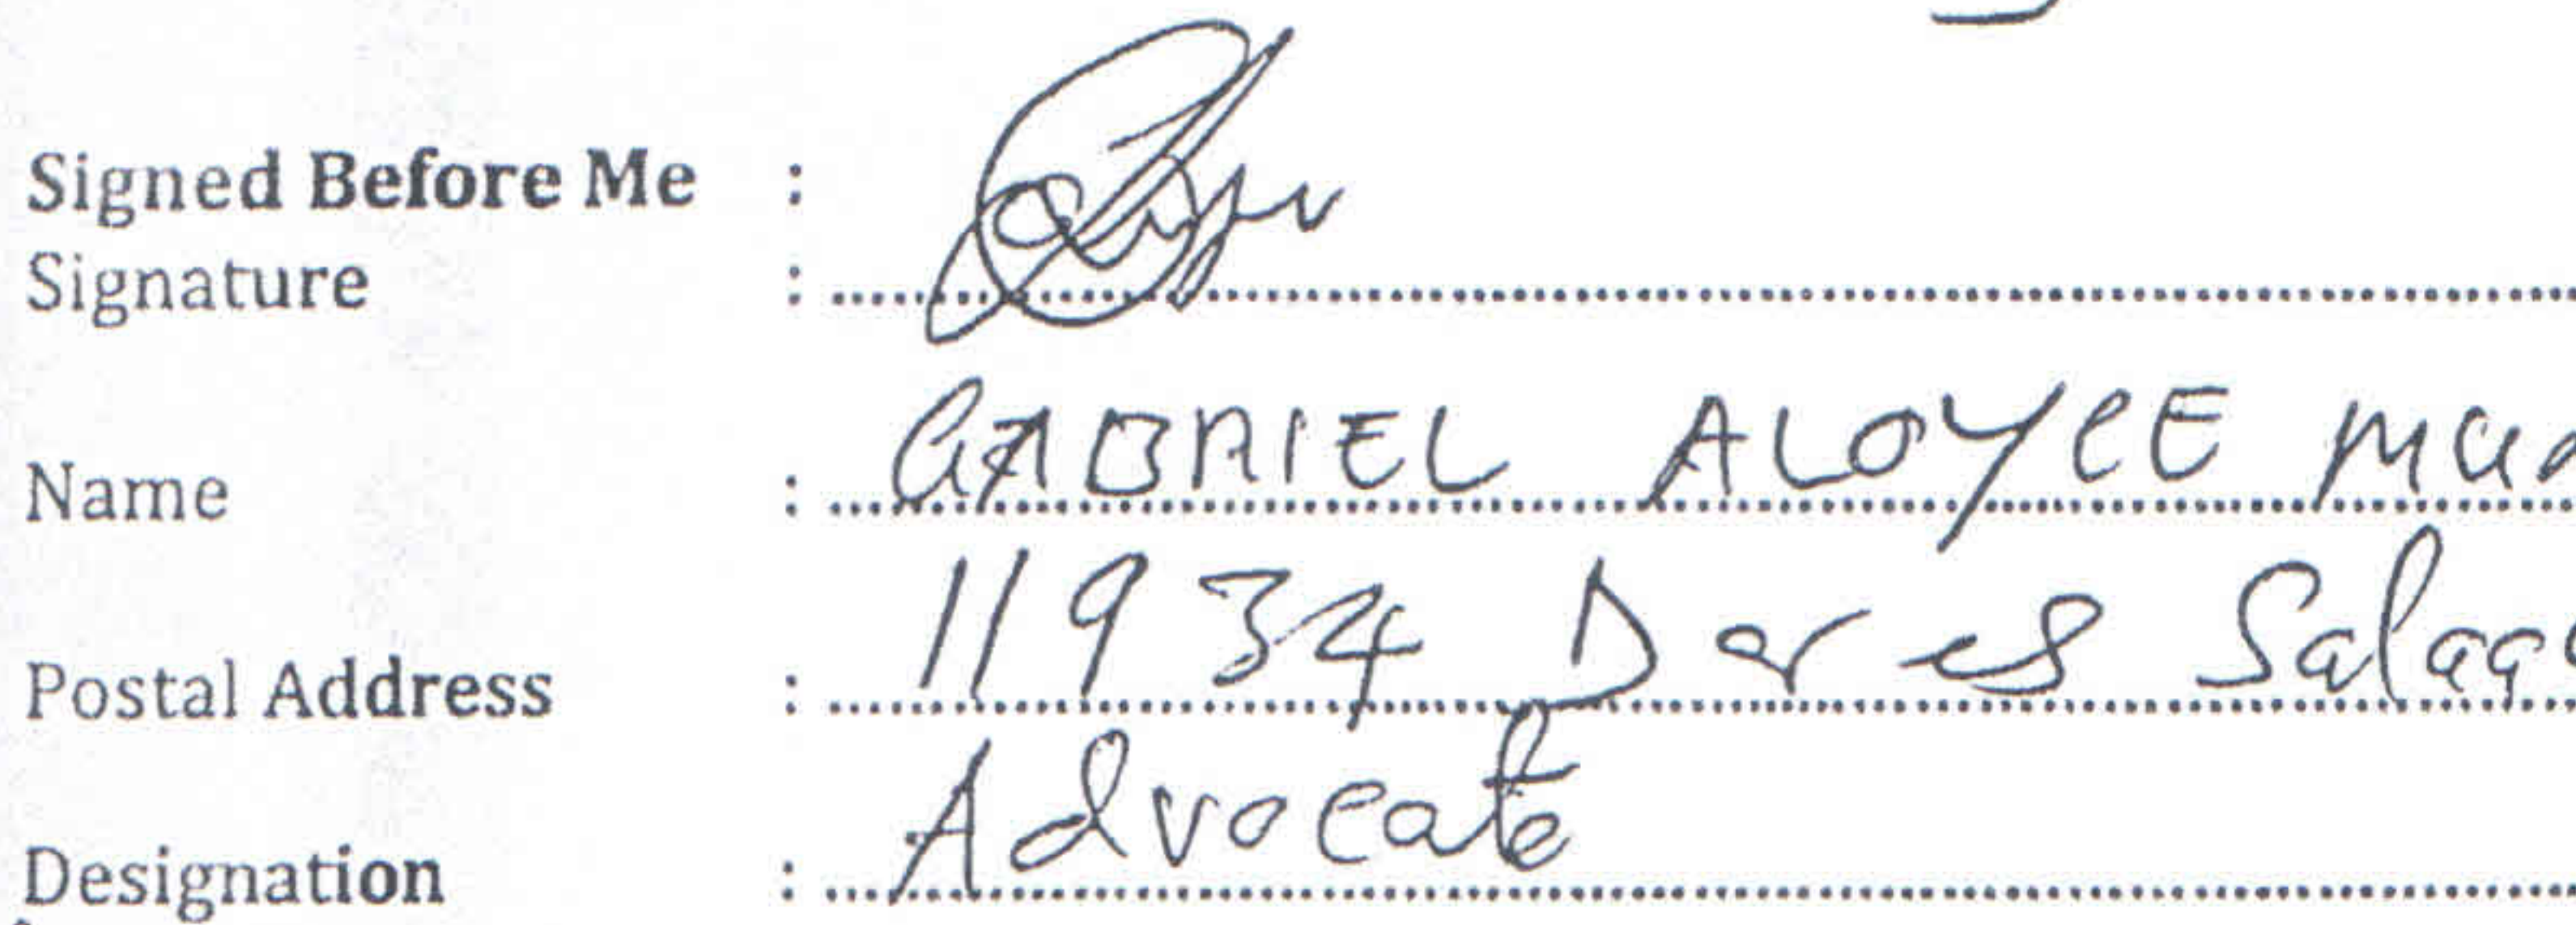 Signed Before Me :
Signature :
Name : GABRIEL ALOYCE
Postal Address : 11934 Dar es Salaa
Designation : Advocate